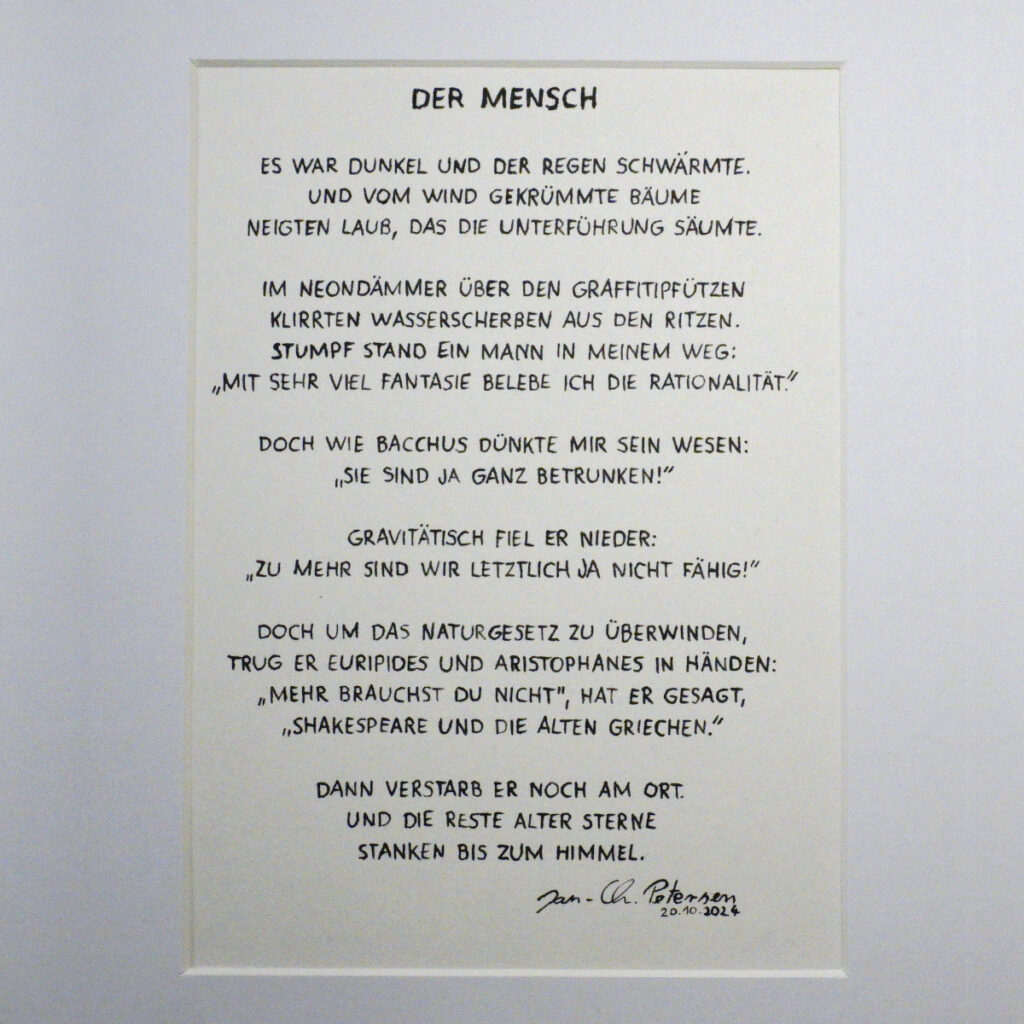 DER MENSCH
ES WAR DUNKEL UND DER REGEN SCHWÄRMTE.
UND VOM WIND GEKRÜMMTE BÄUME
NEIGTEN LAUB, DAS DIE UNTERFÜHRUNG SÄUMTE.
IM NEONDÄMMER ÜBER DEN GRAFFITIPFÜTZEN
KLIRRTEN WASSERSCHERBEN AUS DEN RITZEN.
STUMPF STAND EIN MANN IN MEINEM WEG:
„MIT SEHR VIEL FANTASIE BELEBE ICH DIE RATIONALITÄT.“
DOCH WIE BACCHUS DÜNKTE MIR SEIN WESEN:
„SIE SIND JA GANZ BETRUNKEN!“
GRAVITÄTISCH FIEL ER NIEDER:
„ZU MEHR SIND WIR LETZTLICH JA NICHT FÄHIG!“
DOCH UM DAS NATURGESETZ ZU ÜBERWINDEN,
TRUG ER EURIPIDES UND ARISTOPHANES IN HÄNDEN:
„MEHR BRAUCHST DU NICHT“, HAT ER GESAGT,
„SHAKESPEARE UND DIE ALTEN GRIECHEN.“
DANN VERSTARB ER NOCH AM ORT.
UND DIE RESTE ALTER STERNE
STANKEN BIS ZUM HIMMEL.
Jan-Ch. Petersen
20.10.2024